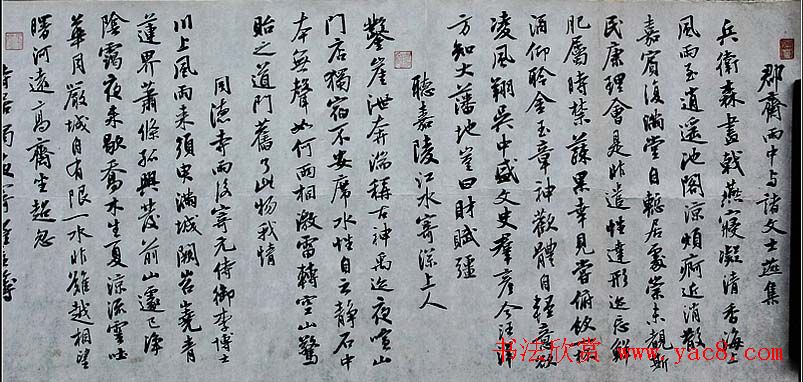 郡齋雨中与諸文士燕集
兵衛森畫戟燕寢凝清香海上
風雨至逍遥池閣涼煩痾近消散
嘉賓復滿堂自慙居處崇未覩斯
民康理會是非遣性達形迹忘鮮
肥屬時禁蔬果幸見嘗俯飲一杯
酒仰聆金玉章神歡體自輕意欲
凌風翔吳中盛文史羣彦今汪洋
方知大藩地豈曰財賦疆
聽嘉陵江水寄深上人
鑿崖泄奔湍稱古神禹迹夜喧山
門店獨宿不安席水性自云静石中
本無聲如何兩相激雷轉空山驚
貽之道門舊了此物我情
同德寺雨後寄元侍御李博士
川上風雨來須臾滿城闕岧嶤青
蓮界蕭條孤興發前山遽已淨
陰靄夜來歇喬木生夏涼流雲吐
華月嚴城自有限一水非難越相望
曙河遠高齋坐超忽
书法欣赏 www.yac8.com